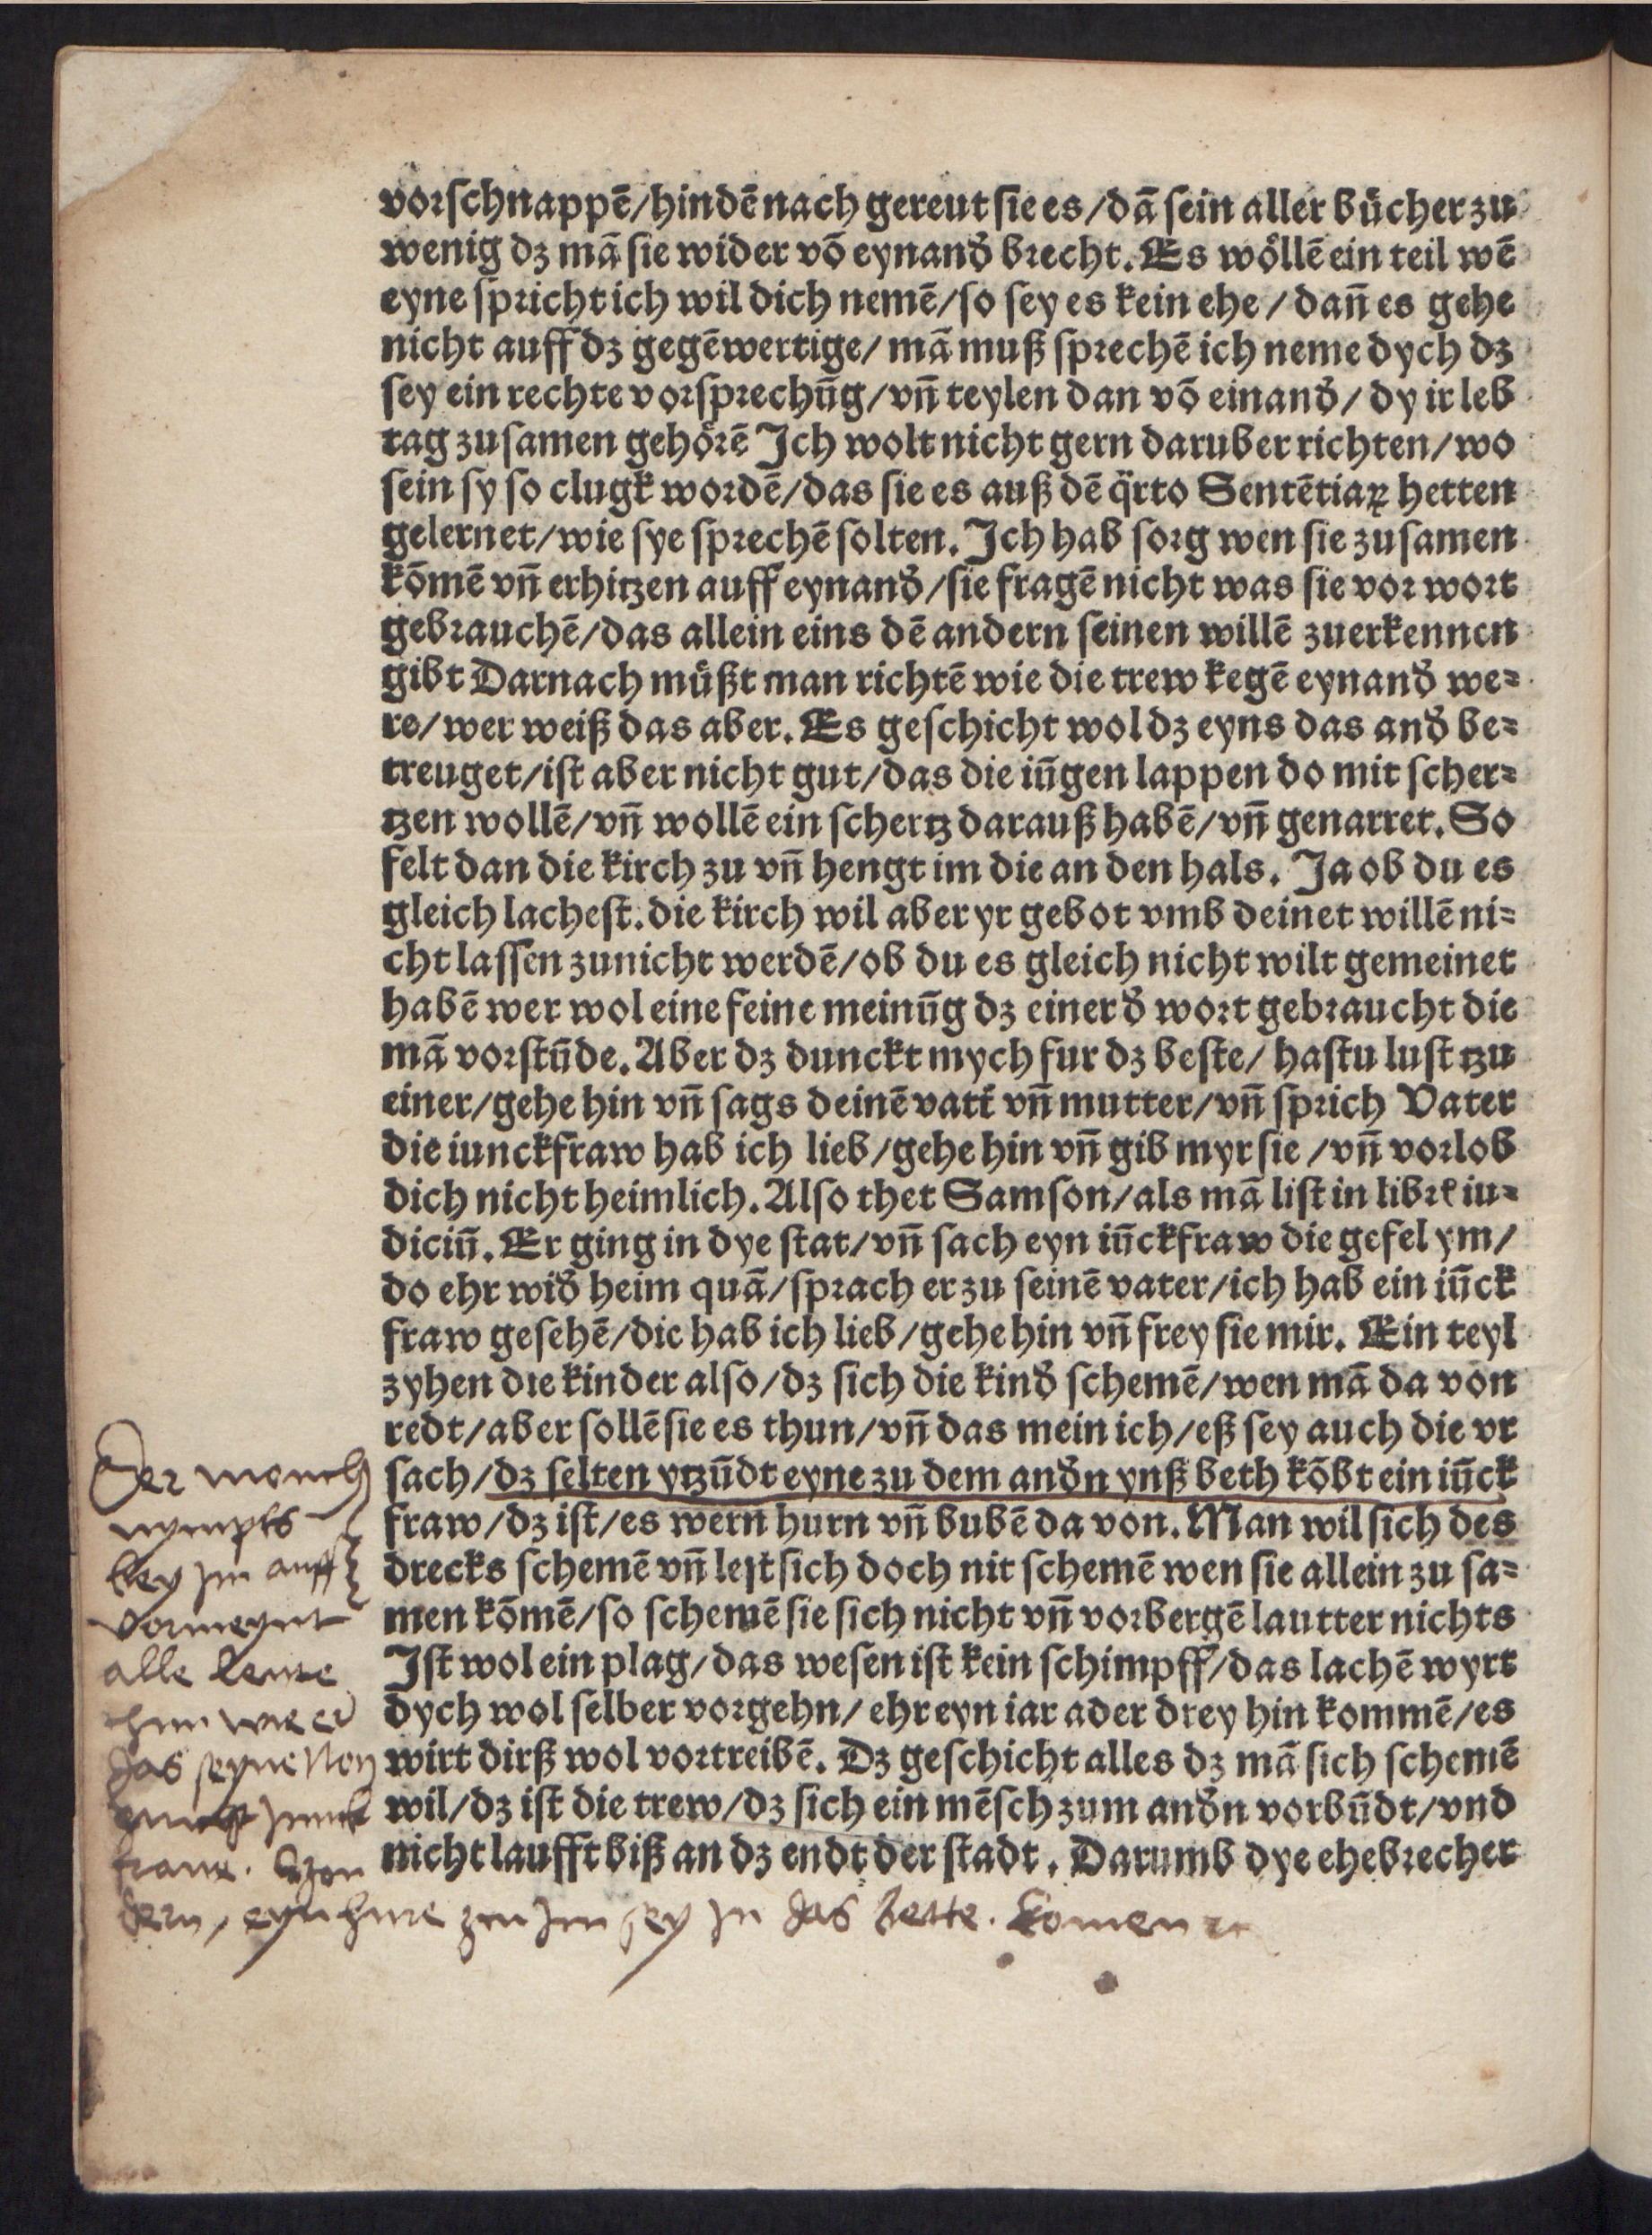 vorschnappē/hindē nach gereut sie es/dā sein aller bücher zu
wenig dz mā sie wider vō eynanð brecht. Es wöllē ein teil wē
eyne spricht ich wil dich nemē/so sey es kein ehe/dañ es gehe
nicht auff dz gegēwertige/mā muß sprechē ich neme dych dz
sey ein rechte vorsprechūg/vñ teylen dan vō einanð/dy ir leb
tag zusamen gehörē Ich wolt nicht gern daruber richten/wo
sein sy so clugk wordē/das sie es auß dē qrto Sentētiaꝝ hetten
gelernet/wie sye sprechē solten. Ich hab sorg wen sie zusamen
kōmē vñ erhitzen auff eynanð/sie fragē nicht was sie vor wort
gebrauchē/das allein eins dē andern seinen willē zuerkennen
gibt Darnach müßt man richtē wie die trew kegē eynanð we⸗
re/wer weiß das aber. Es geschicht wol dz eyns das anð be⸗
treuget/ist aber nicht gut/das die iūgen lappen do mit scher⸗
tzen wollē/vñ wollē ein schertz darauß habē/vñ genarret. So
felt dan die kirch zu vñ hengt im die an den hals. Ja ob du es
gleich lachest. die kirch wil aber yr gebot vmb deinet willē ni⸗
cht lassen zunicht werdē/ob du es gleich nicht wilt gemeinet
habē wer wol eine feine meinūg dz einer ð wort gebraucht die
mā vorstūde. Aber dz dunckt mych fur dz beste/hastu lust tzu
einer/gehe hin vñ sags deinē vatt̄ vñ mutter/vñ sprich Vater
die iunckfraw hab ich lieb/gehe hin vñ gib myr sie/vñ vorlob
dich nicht heimlich. Also thet Samson/als mā list in libr̄ iu⸗
diciū. Er ging in dye stat/vñ sach eyn iūckfraw die gefel ym/
do ehr wið heim quā/sprach er zu seinē vater/ich hab ein iūck
fraw gesehē/die hab ich lieb/gehe hin vñ frey sie mir. Ein teyl
zyhen die kinder also/dz sich die kinð schemē/wen mā da von
redt/aber sollē sie es thun/vñ das mein ich/eß sey auch die vr
sach/dz selten ytzūdt eyne zu dem anðn ynß beth kōbt ein iūck
fraw/dz ist/es wern hurn vñ bubē da von. Man wil sich des
drecks schemē vñ lest sich doch nit schemē wen sie allein zu sa⸗
men kōmē/so schemē sie sich nicht vñ vorbergē lautter nichts
Ist wol ein plag/das wesen ist kein schimpff/das lachē wyrt
dych wol selber vorgehn/ehr eyn iar ader drey hin kommē/es
wirt dirß wol vortreibē. Dz geschicht alles dz mā sich schemē
wil/dz ist die trew/dz sich ein mēsch zum anðn vorbūdt/vnd
nicht laufft biß an dz endt der stadt. Darumb dye ehebrecher
Der monch
nympts
bey jm auff
vormeynt
alle leute
thun wie er
das seyne
nicht junck
fraue. Szon
dern, eyn hure zu jm sey jn das bette. komen